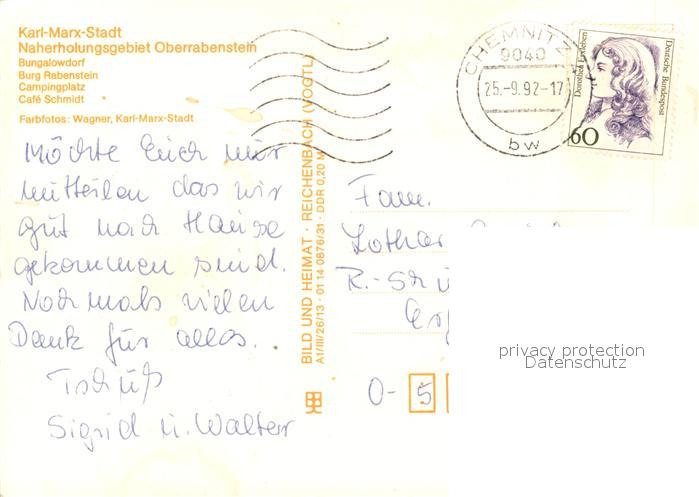 Karl-Marx-Stadt
Naherholungsgebiet Oberrabenstein
Bungalowdorf
Burg Rabenstein
Campingplatz
Café Schmidt
Farbfotos: Wagner, Karl-Marx-Stadt
Möchte Euch nur
mitteilen das wir
gut nach Hause
gekommen sind.
Nochmals vielen
Dank für alles.
Tschüß
Sigrid u. Walter
BILD UND HEIMAT · REICHENBACH (VOGTL)
A1/III/26/13 · 01 14 0876/31 · DDR 0,20 M
CHEMNITZ
9040
25.-9.92-17
bw
Dorothea Erxleben
Deutsche Bundespost
60
Fam.
Lothar
R.-
O- 5
privacy protection
Datenschutz